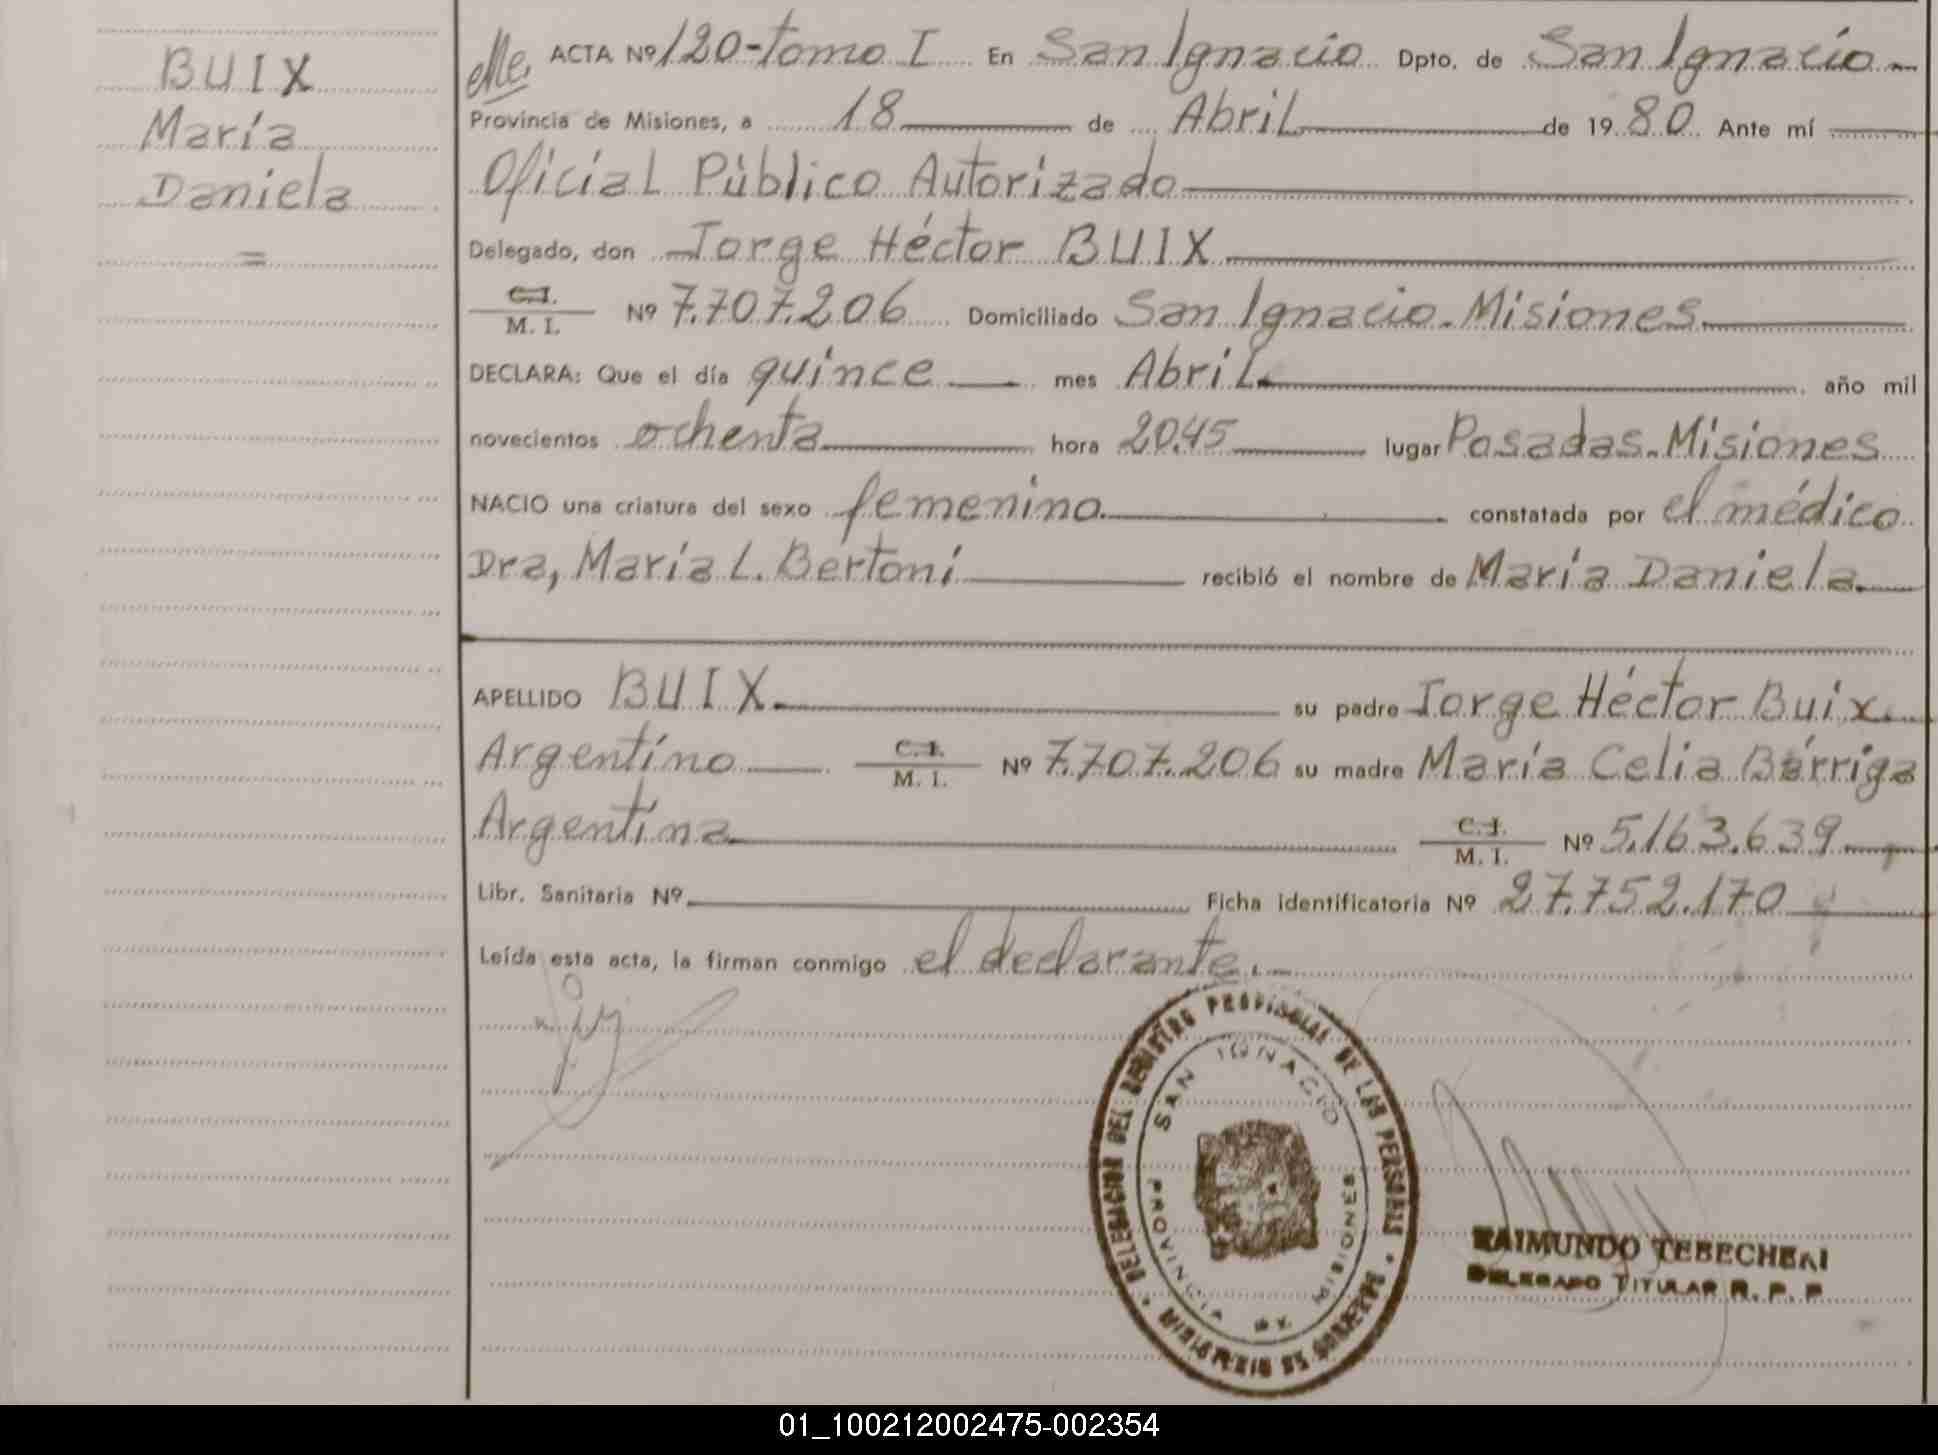 BUIX
María
Daniela
=
ACTA Nº 120-tomo I En San Ignacio Dpto. de San Ignacio
Provincia de Misiones, a 18 de Abril de 1980 Ante mí
Oficial Público Autorizado
Delegado, don Jorge Héctor BUIX
C.I.
M. I. Nº 7.707.206 Domiciliado San Ignacio-Misiones
DECLARA: Que el día quince mes Abril, año mil
novecientos ochenta hora 20.45 lugar Posadas-Misiones
NACIO una criatura del sexo femenino constatada por el médico
Dra, María L. Bertoni recibió el nombre de María Daniela
APELLIDO BUIX su padre Jorge Héctor Buix
Argentino C.I.
M. I. Nº 7.707.206 su madre María Celia Bárriga
Argentina C.I.
M. I. Nº 5.163.639
Libr. Sanitaria Nº Ficha identificatoria Nº 27.752.170
Leída esta acta, la firman conmigo el declarante.
DELEGACION DEL REGISTRO PROVINCIAL DE LAS PERSONAS
SAN IGNACIO
PROVINCIA DE MISIONES
MINISTERIO DE GOBIERNO
RAIMUNDO TEBECHERI
DELEGADO TITULAR R. P. P
01_100212002475-002354